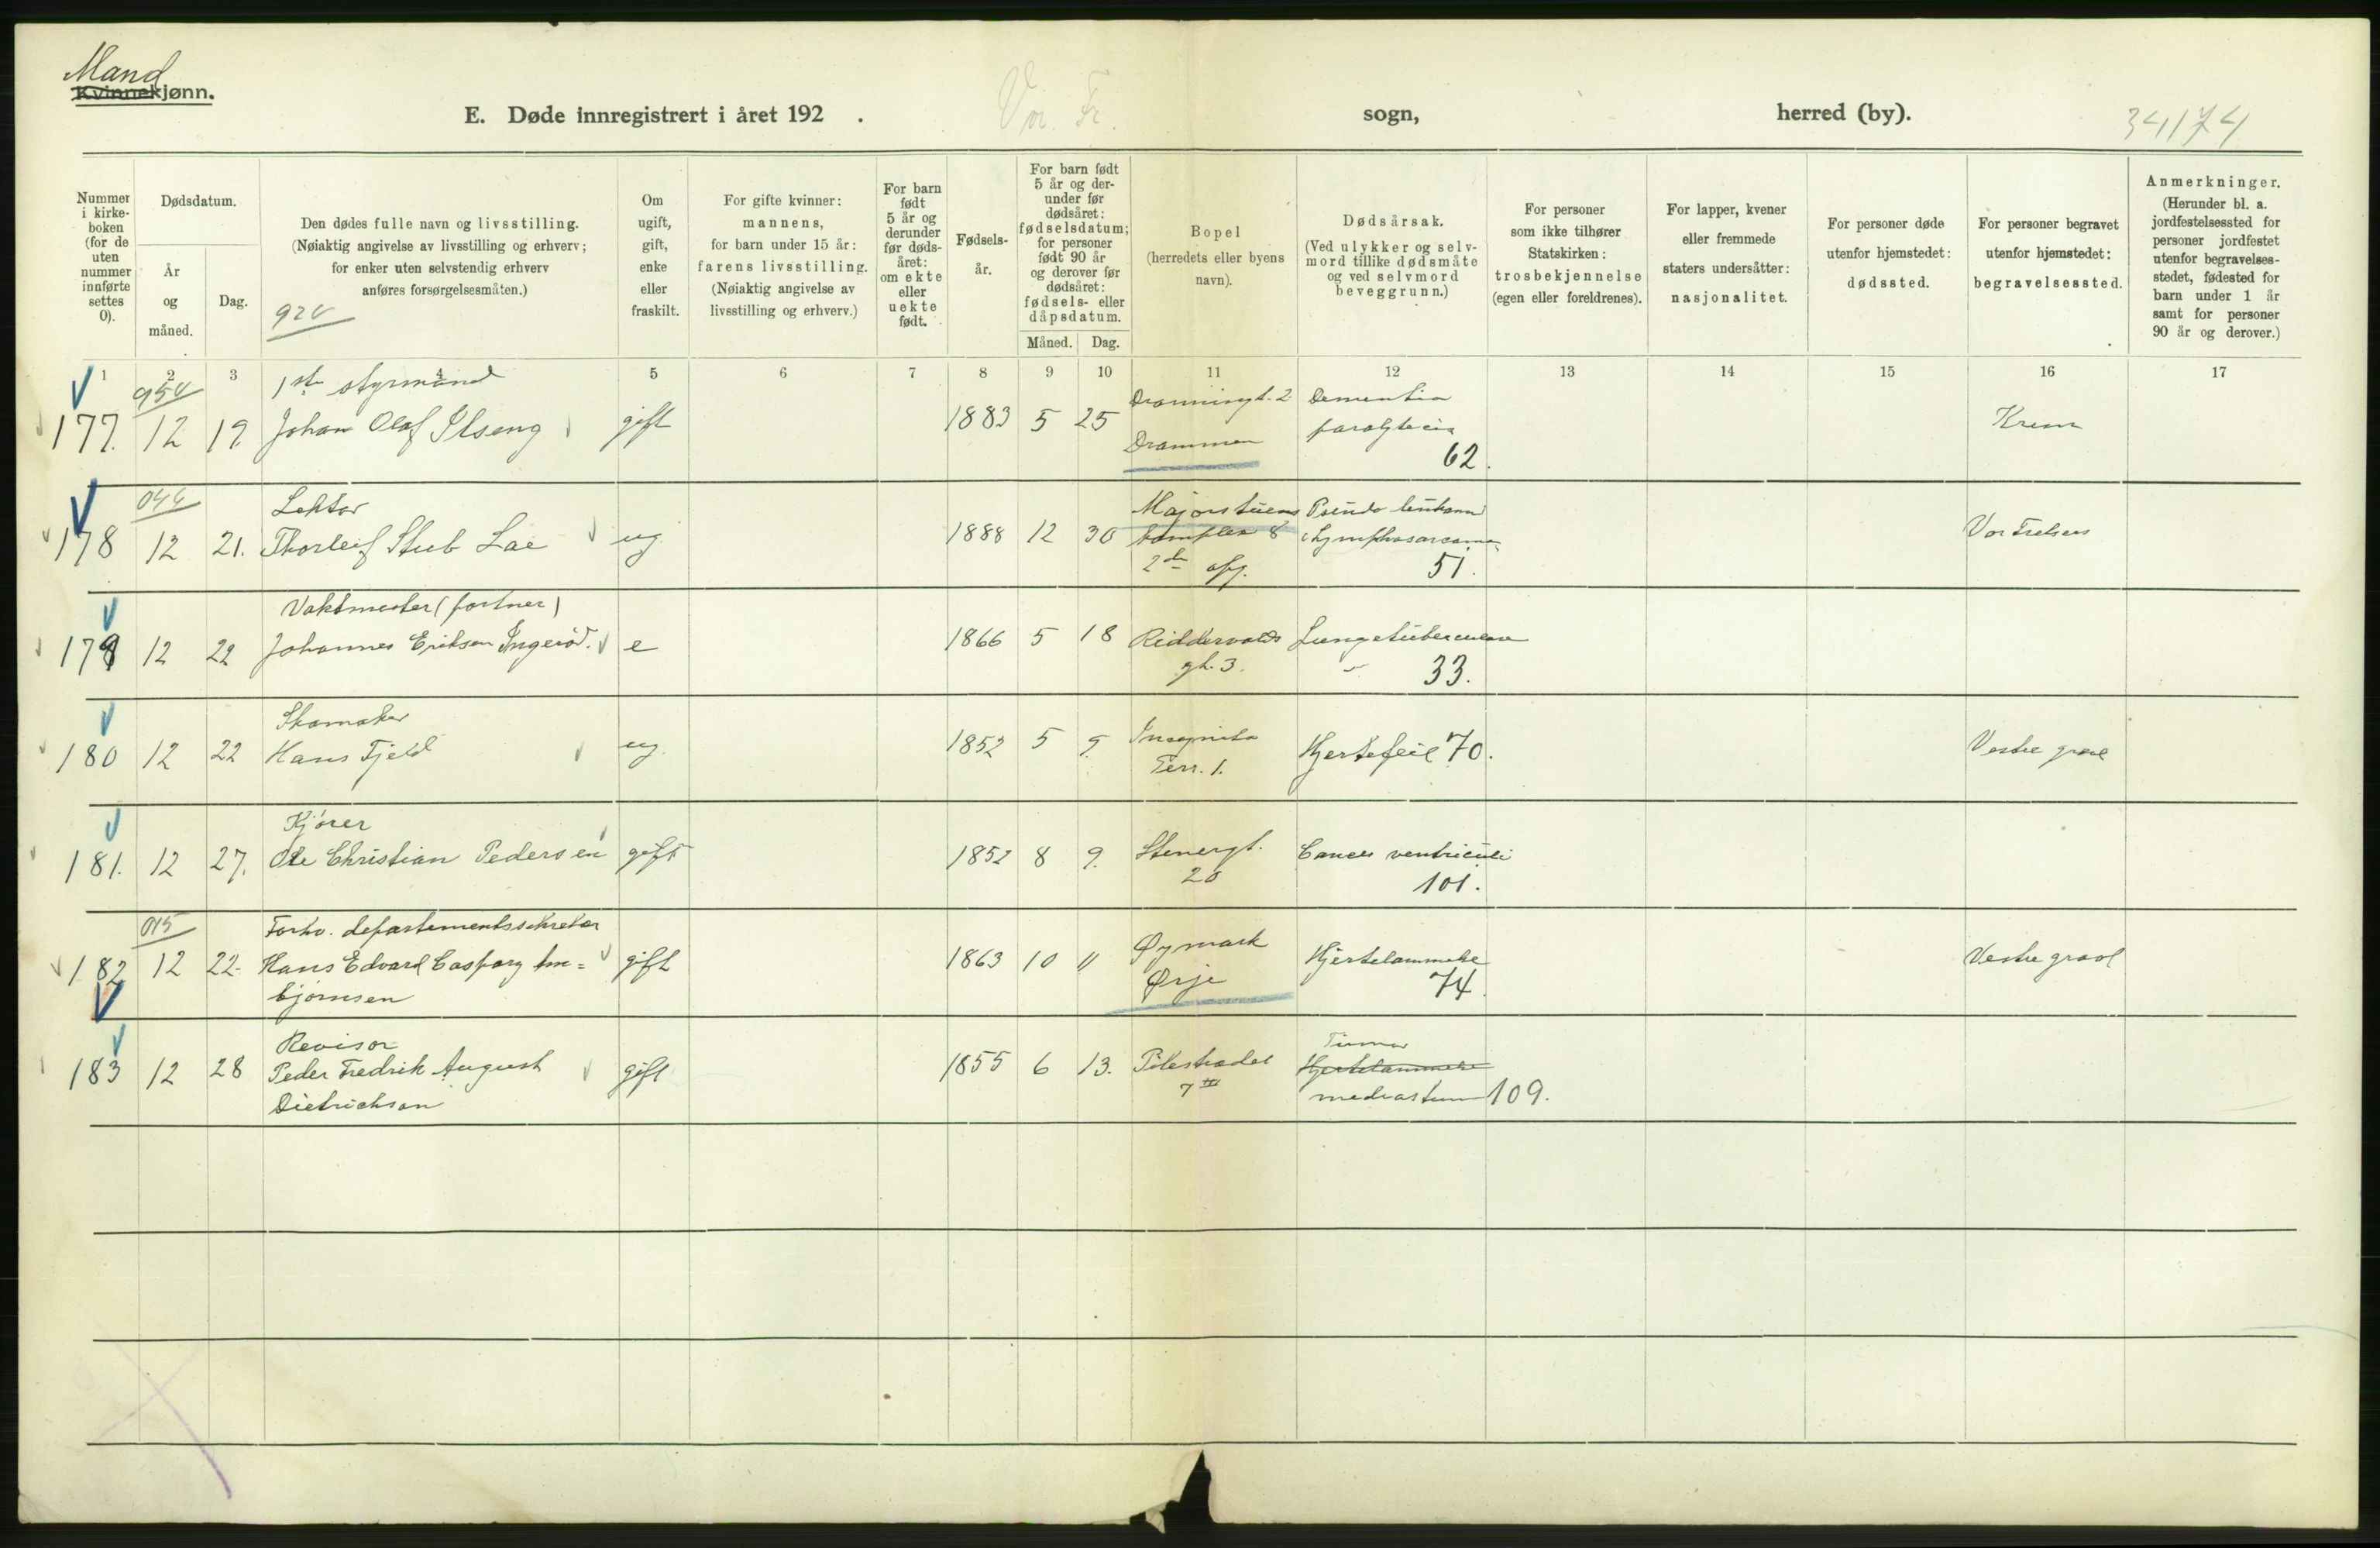 Mand
Kvinnekjønn.
E. Døde innregistrert i året 192 . Vor. Fr. sogn, herred (by).
34174
Nummer i kirkeboken (for de uten nummer innførte settes 0).
Dødsdatum.
År og måned.
Dag.
Den dødes fulle navn og livsstilling.
(Nøiaktig angivelse av livsstilling og erhverv;
for enker uten selvstendig erhverv
anføres forsørgelsesmåten.)
Om ugift, gift, enke eller fraskilt.
For gifte kvinner:
mannens,
for barn under 15 år:
farens livsstilling.
(Nøiaktig angivelse av
livsstilling og erhverv.)
For barn født 5 år og derunder før dødsåret: om ekte eller uekte født.
Fødselsår.
For barn født 5 år og derunder før dødsåret: fødselsdatum; for personer født 90 år og derover før dødsåret: fødsels- eller dåpsdatum.
Måned. Dag.
Bopel
(herredets eller byens navn).
Dødsårsak.
(Ved ulykker og selvmord tillike dødsmåte og ved selvmord beveggrunn.)
For personer som ikke tilhører Statskirken: trosbekjennelse (egen eller foreldrenes).
For lapper, kvener eller fremmede staters undersåtter: nasjonalitet.
For personer døde utenfor hjemstedet: dødssted.
For personer begravet utenfor hjemstedet: begravelsessted.
Anmerkninger.
(Herunder bl. a. jordfestelsessted for personer jordfestet utenfor begravelsesstedet, fødested for barn under 1 år samt for personer 90 år og derover.)
1 2 3 4 5 6 7 8 9 10 11 12 13 14 15 16 17
1ste styrmand
177. 12 19. Johan Olaf Ilseng gift 1883 5 25 Dronningt. 2 Dementia
Drammen paralytica
62. Krem
Lektor
178 12 21. Thorleif Stub Lae ug. 1888 12 30 Majorstuens
2den opg. Lymphosarcoma
51. Vor Frelsers
Vaktmester (portner)
179 12 22 Johannes Eriksen Ingeröd. e 1866 5 18 Riddervolds Lungetuberculose
gt. 3. 33.
Skomaker
180 12 22 Hans Fjeld ug. 1852 5 9. Incognito Hjertefeil 70.
Terr. 1. Vestre grav
Kjører
181. 12 27. Ole Christian Pedersen gift 1852 8 9. Stenergt. Cancer ventriculi
20 101.
015
Forhv. departementssekretær
182 12 22. Hans Edvard Caspary Im= gift 1863 10 11 Øymark Hjertelammelse Vestre grav
bjørnsen Ørje 74.
Revisor Tumor
183 12 28 Peder Fredrik August gift 1855 6 13. Pilestrædet Hjertelammelse
Dietrichson 7 III mediastinum 109.